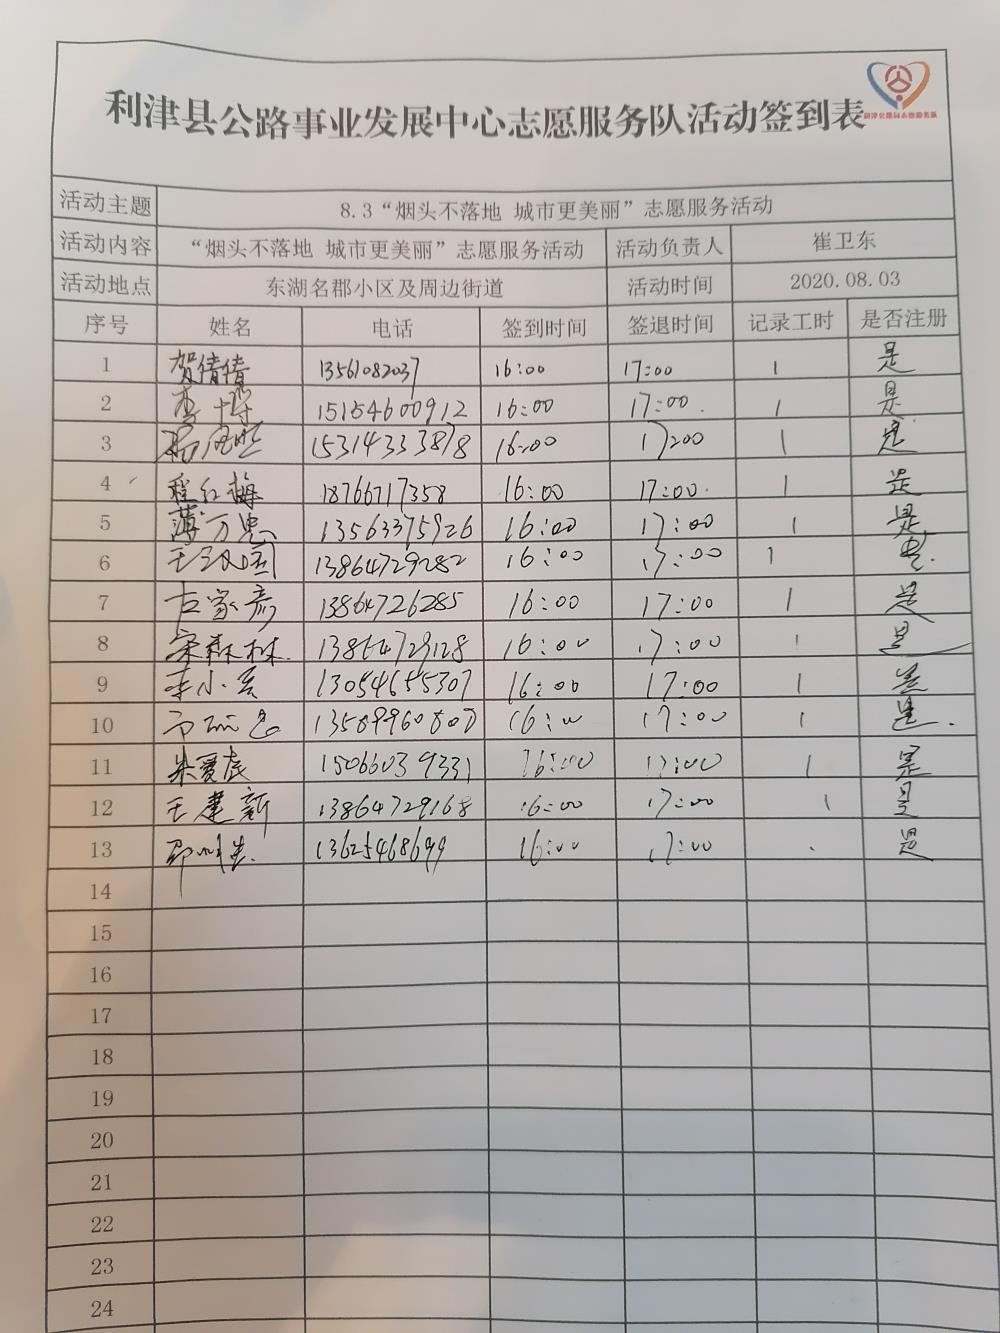 利津县公路事业发展中心志愿服务队活动签到表
利津公路局志愿服务队
活动主题 8.3“烟头不落地 城市更美丽”志愿服务活动
活动内容 “烟头不落地 城市更美丽”志愿服务活动 活动负责人 崔卫东
活动地点 东湖名郡小区及周边街道 活动时间 2020.08.03
序号 姓名 电话 签到时间 签退时间 记录工时 是否注册
1 贺倩倩 13561082037 16:00 17:00 1 是
2 李博 15154600912 16:00 17:00 1 是
3 15314333878 16:00 17:00 1 是
4 程红梅 18766717358 16:00 17:00 1 是
5 薄万忠 13563375926 16:00 17:00 1 是
6 13864729282 16:00 17:00 1 是
7 古家彦 13864726285 16:00 17:00 1 是
8 宋森林 13864729128 16:00 17:00 1 是
9 李小云 13054655307 16:00 17:00 1 是
10 13589960807 16:00 17:00 1 是
11 朱爱民 15066039331 16:00 17:00 1 是
12 王建新 13864729168 16:00 17:00 1 是
13 13625468699 16:00 17:00 是
14
15
16
17
18
19
20
21
22
23
24